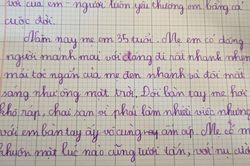 với của em - người luôn yêu thương em bằng cả
cuộc đời.
Năm nay mẹ em 35 tuổi. Mẹ em có dáng
người mảnh mai với dáng đi rất nhanh nhẹn
mái tóc ngắn của mẹ đen nhánh và đôi mắt
sáng như ông mặt trời. Đôi bàn tay mẹ hơi
khô ráp, chai sạn vì phải làm nhiều việc nhưng
với em bàn tay ấy vô cùng ấm áp. Mẹ có
khuôn mặt lúc nào cũng tươi tắn, với nụ cười